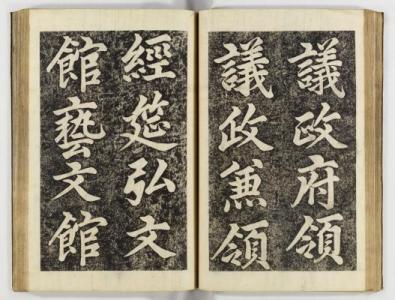 議政府領
議政兼領
經筵弘文
館藝文館